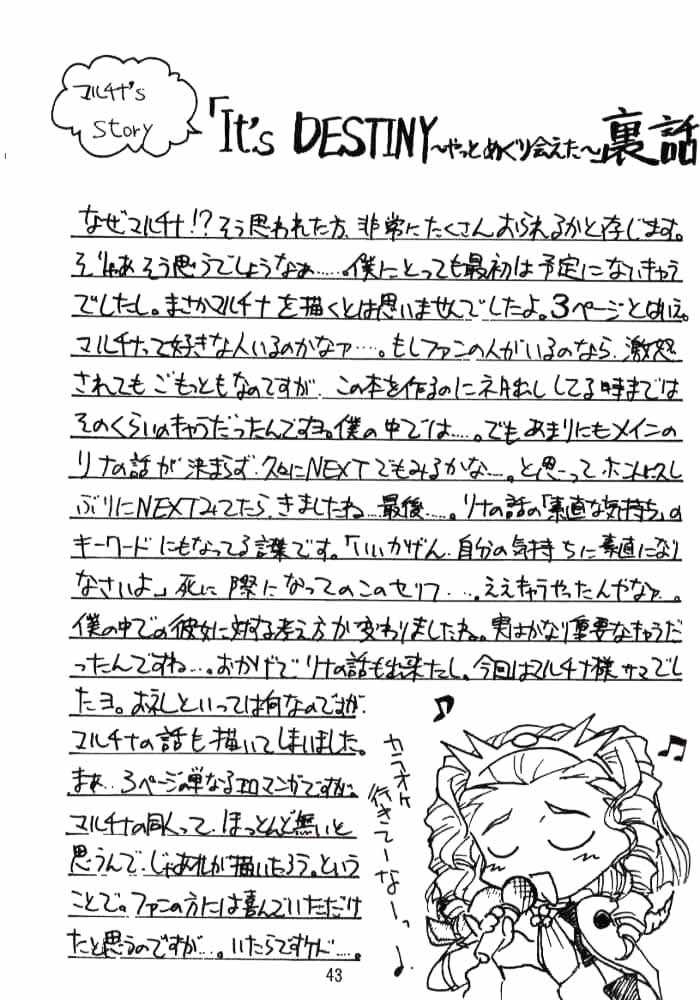 マルチナ's
story
「It's DESTINY〜やっとめぐり会えた〜」裏話
なぜマルチナ!?そう思われた方、非常にたくさんおられるかと存じます。
そりゃあそう思うでしょうなぁ……。僕にとっても最初は予定にないキャラ
でしたし。まさかマルチナを描くとは思いませんでしたよ。3ページとはいえ。
マルチナって好きな人いるのかなァ…。もしファンの人がいるのなら、激怒
されてもごもっともなのですが、この本を作るのにネタ出ししてる時までは
そのくらいのキャラだったんですヨ。僕の中では……。でもあまりにもメインの
リナの話が決まらず、久々にNEXTでもみるかな…。と思ってホントに久し
ぶりにNEXTみてたら、きましたね…最後…。リナの話の「素直な気持ち」の
キーワードにもなってる言葉です。「いいかげん、自分の気持ちに素直になり
なさいよ」死に際になってのこのセリフ…。ええキャラやったんやなァ。
僕の中での彼女に対する考え方が変わりましたね。実はかなり重要なキャラだ
ったんですね…。おかげでリナの話も出来たし。今回はマルチナ様サマでし
たヨ。お礼といっては何なのですが、
マルチナの話も描いてしまいました。
まぁ…3ページの単なるエロマンガですが。
マルチナの同人って、ほっとんど無いと
思うんで、じゃあオレが描いたろう。という
ことで。ファンの方には喜んでいただけ
たと思うのですが…。いたらですケド…。
カラオケ
行きてーなーっ
43